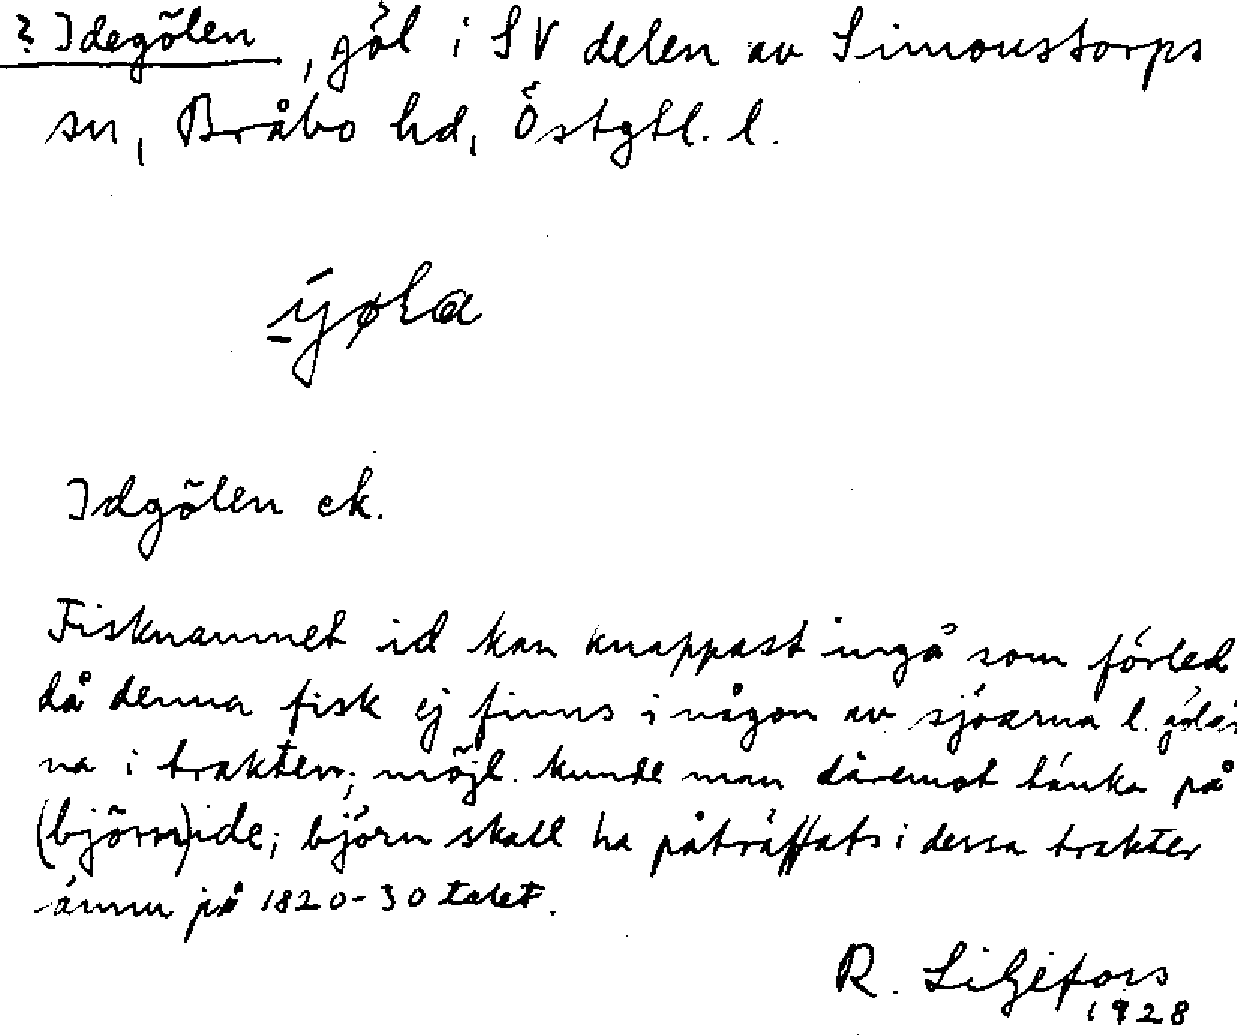 ? Idegölen, göl i SV delen av Simonstorps
sn, Bråbo hd, Östgtl. l.
Idgölen ek.
Fisknamnet id kan knappast ingå som förled
då denna fisk ej finns i någon av sjöarna l.
na i trakten; möjl. kunde man däremot tänka på
(björn)ide; björn skall ha påträffats i dessa trakter
ännu på 1820-30 talet.
R. Liljefors
1928